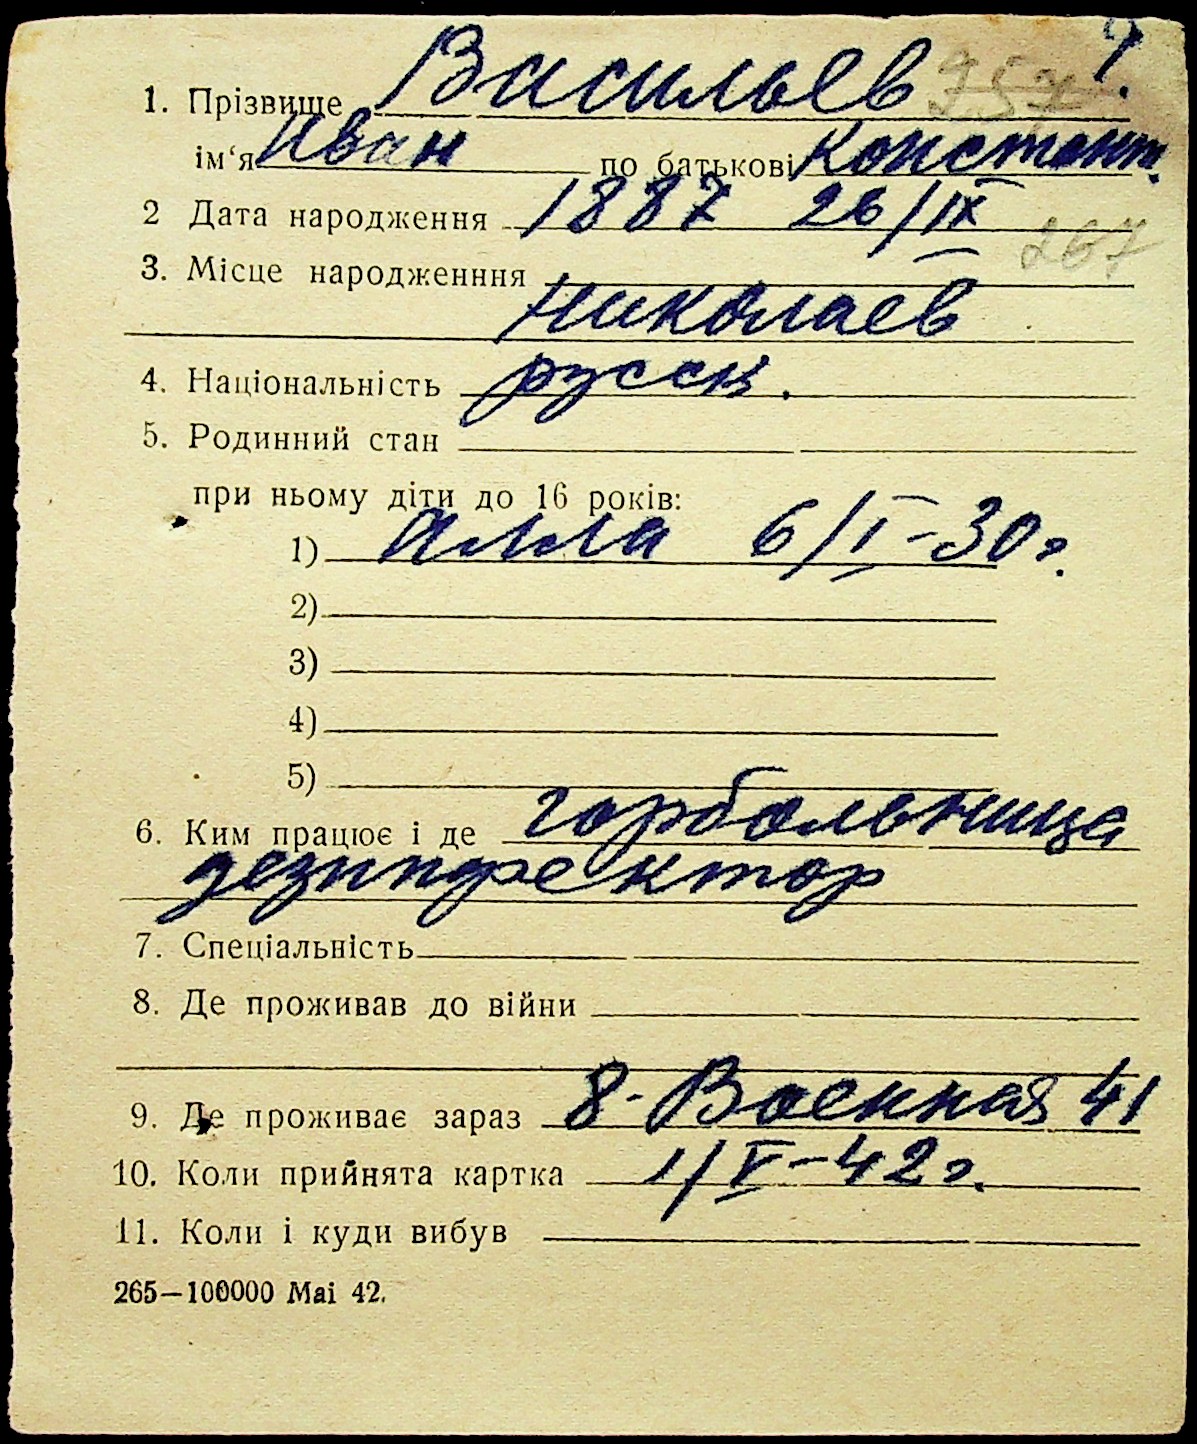 1. Прізвище Васильев
ім‘я Иван по батькові Констант.
2 Дата народження 1887 26/IX
267
3. Місце народженння
Николаев
4. Національність русск.
5. Родинний стан
при ньому діти до 16 років:
1) Алла 6/I-30 г.
2)
3)
4)
5)
6. Ким працює і де горбольница
дезинфектор
7. Спеціальність
8. Де проживав до війни
9. Де проживає зараз 8-Военная 41
10. Коли прийнята картка 1/V-42 г.
11. Коли і куди вибув
265—100000 Mai 42.